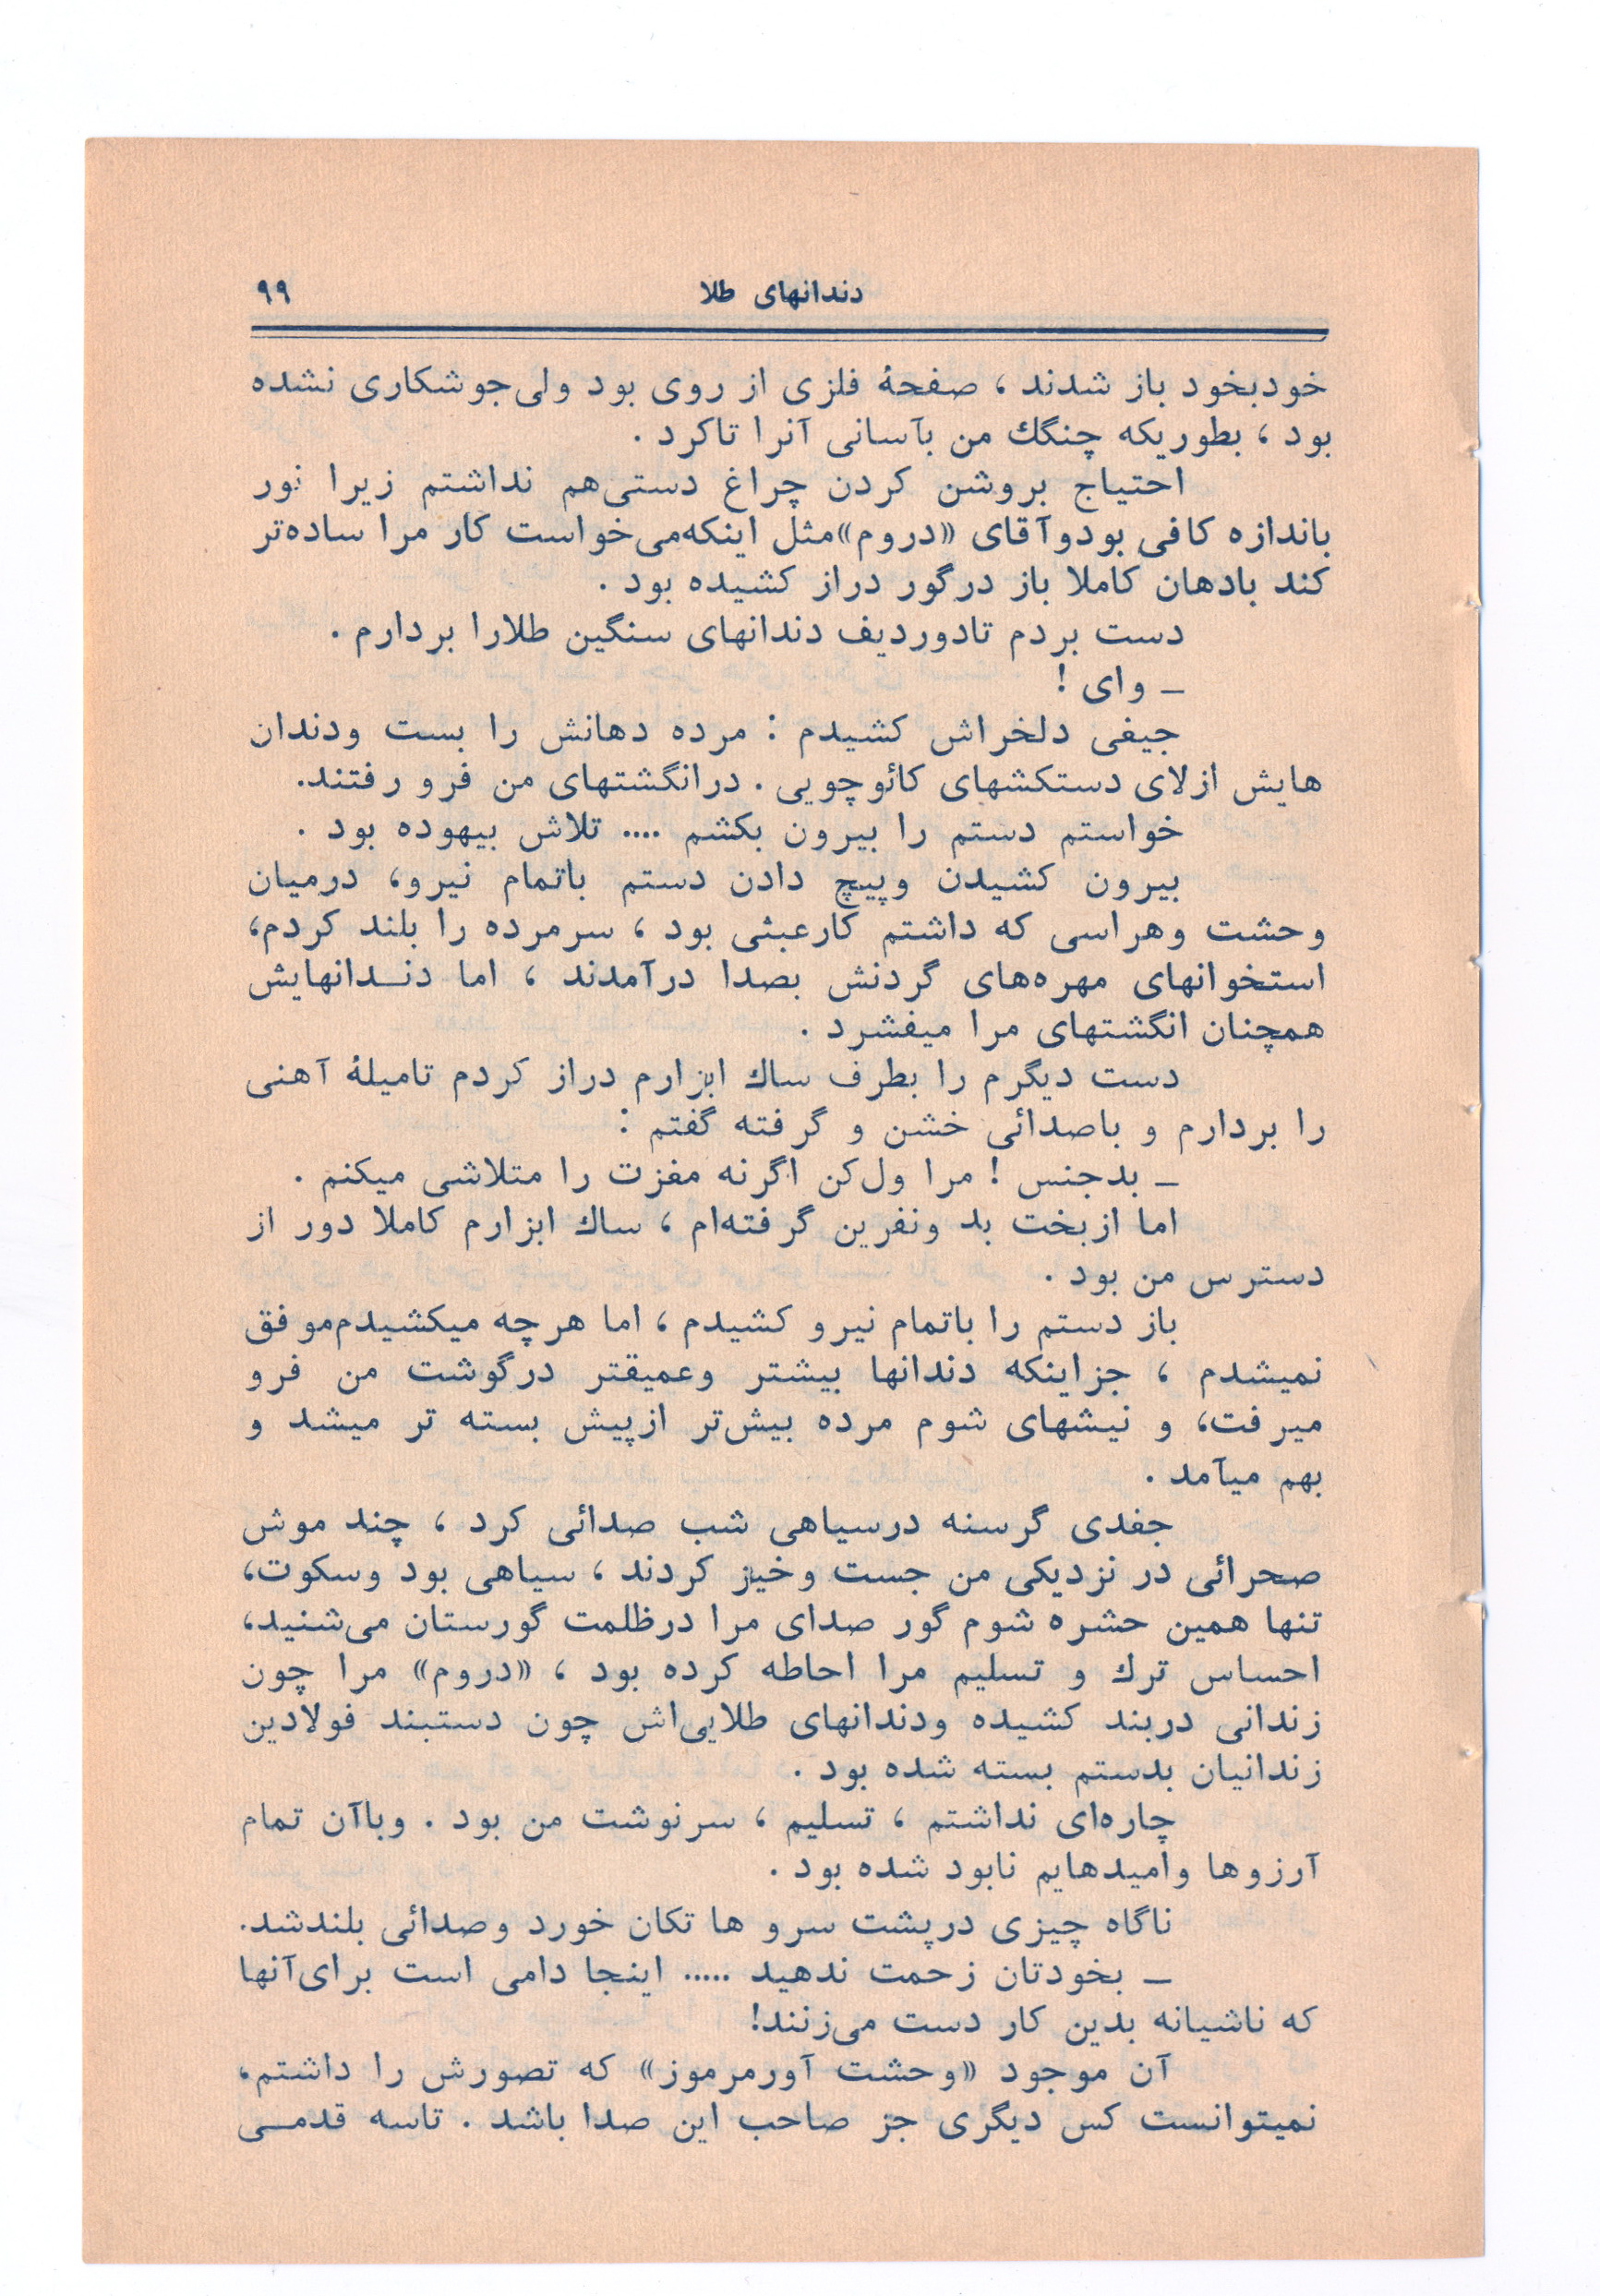 دندانهای طلا
۹۹
خودبخود باز شدند ، صفحهٔ فلزی از روی بود ولی‌جوشکاری نشده
بود ، بطوریکه چنگك من بآسانی آنرا تاکرد .
احتیاج بروشن کردن چراغ دستی‌هم نداشتم زیرا نور
باندازه کافی بودوآقای «دروم»مثل اینکه‌می‌خواست کار مرا ساده‌تر
کند بادهان کاملا باز درگور دراز کشیده بود .
دست بردم تادوردیف دندانهای سنگین طلارا بردارم .
ـ وای !
جیغی دلخراش کشیدم : مرده دهانش را بست ودندان
هایش ازلای دستکشهای کائوچویی . درانگشتهای من فرو رفتند.
خواستم دستم را بیرون بکشم .... تلاش بیهوده بود .
بیرون کشیدن وپیچ دادن دستم باتمام نیرو، درمیان
وحشت وهراسی که داشتم کارعبثی بود ، سرمرده را بلند کردم،
استخوانهای مهره‌های گردنش بصدا درآمدند ، اما دنـدانهایش
همچنان انگشتهای مرا میفشرد .
دست دیگرم را بطرف ساك ابزارم دراز کردم تامیلهٔ آهنی
را بردارم و باصدائی خشن و گرفته گفتم :
ـ بدجنس ! مرا ول‌کن اگرنه مغزت را متلاشی میکنم .
اما ازبخت بد ونفرین گرفته‌ام ، ساك ابزارم کاملا دور از
دسترس من بود .
باز دستم را باتمام نیرو کشیدم ، اما هرچه میکشیدم‌موفق
نمیشدم ، جزاینکه دندانها بیشتر وعمیقتر درگوشت من فرو
میرفت، و نیشهای شوم مرده بیش‌تر ازپیش بسته تر میشد و
بهم میآمد .
جغدی گرسنه درسیاهی شب صدائی کرد ، چند موش
صحرائی در نزدیکی من جست وخیز کردند ، سیاهی بود وسکوت،
تنها همین حشره شوم گور صدای مرا درظلمت گورستان می‌شنید،
احساس ترك و تسلیم مرا احاطه کرده بود ، «دروم» مرا چون
زندانی دربند کشیده ودندانهای طلایی‌اش چون دستبند فولادین
زندانیان بدستم بسته شده بود .
چاره‌ای نداشتم ، تسلیم ، سرنوشت من بود . وباآن تمام
آرزوها وامیدهایم نابود شده بود .
ناگاه چیزی درپشت سرو ها تکان خورد وصدائی بلندشد.
ـ بخودتان زحمت ندهید ..... اینجا دامی است برای‌آنها
که ناشیانه بدین کار دست می‌زنند!
آن موجود «وحشت آورمرموز» که تصورش را داشتم،
نمیتوانست کس دیگری جز صاحب این صدا باشد . تاسه قدمـی